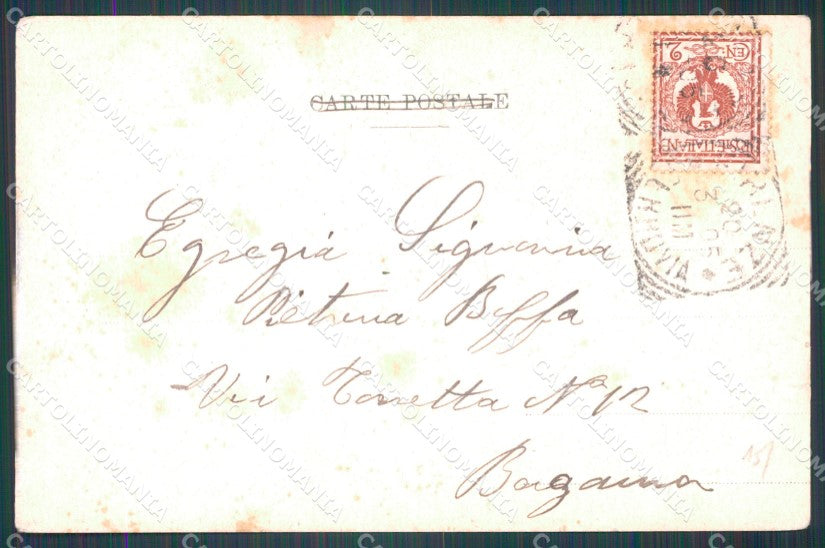 CARTE POSTALE
EN. 2
POSTE ITALIANE
FERROVIA
Egregia Signorina
Pietrina Beffa
Via Torretta N° 12
Bergamo
15/
CARTOLINOMANIA